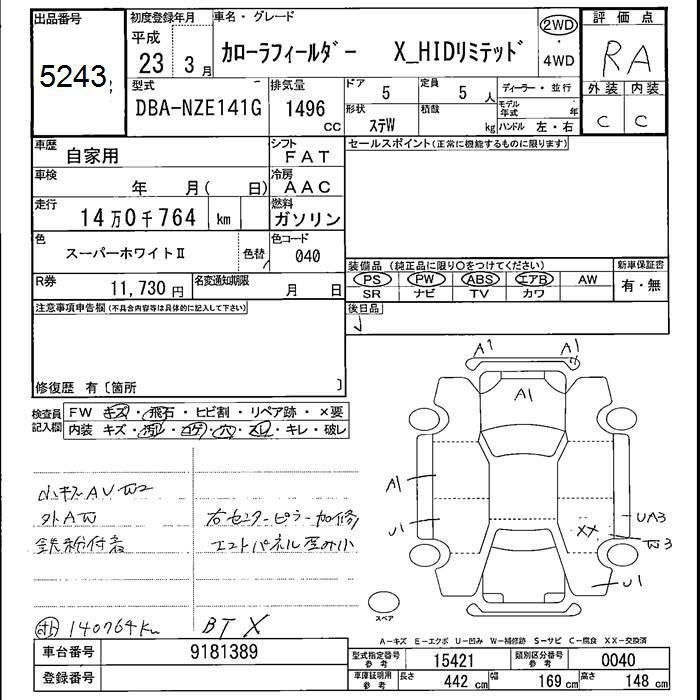 出品番号
5243
初度登録年月
平成
23 3月
車名・グレード
カローラフィールダー X_HIDリミテッド
2WD
・
4WD
評価点
RA
外装 内装
C C
型式
DBA-NZE141G
排気量
1496
CC
ドア
5
定員
5 人
形状
ステW
積載
kg
ディーラー・並行
モデル
年式 年
ハンドル 左・右
車歴
自家用
シフト
FAT
車検
年 月( 日)
冷房
AAC
走行
14万0千764 km
燃料
ガソリン
色
スーパーホワイトⅡ
色替
色コード
040
R券
11,730 円
名変通知期限
月 日
セールスポイント(正常に機能するものに限ります)
装備品 (純正品に限り○をつけてください)
PS PW ABS エアB AW
SR ナビ TV カワ
新車保証書
有・無
後日品
注意事項申告欄(不具合内容等は具体的に記入して下さい)
修復歴 有〔箇所 〕
検査員
記入欄
FW キズ・飛石・ヒビ割・リペア跡・×要
内装 キズ・汚レ・コゲ・穴・スレ・キレ・破レ
小キズAU W2
外AW
鉄粉付着
右センターピラー加修
エンドパネル歪み小
140764km
BTX
A1
A1
A1
A1
U1
XX
UA3
W3
U1
スペア
A-キズ E-エクボ U-凹み W-補修跡 S-サビ C-腐食 XX-交換済
車台番号
9181389
登録番号
型式指定番号
参考
15421
類別区分番号
参考
0040
車庫証明用
参考
長さ
442 cm
幅
169 cm
高さ
148 cm